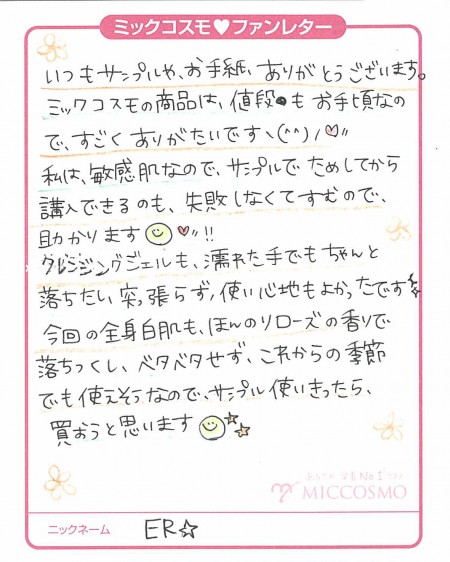 ミックコスモ♥ファンレター
いつもサンプルや、お手紙、ありがとうございます。
ミックコスモの商品は、値段もお手頃なの
で、すごくありがたいです ヽ(^^)ノ♡〃
私は、敏感肌なので、サンプルでためしてから
購入できるのも、失敗しなくてすむので、
助かります♡〃!!
クレンジングジェルも、濡れた手でもちゃんと
落ちたし、突っ張らず、使い心地もよかったです☆
今回の全身白肌も、ほんのりローズの香りで
落ちつくし、ベタベタせず、これからの季節
でも使えそうなので、サンプル使いきったら、
買おうと思います☆☆
No1
MICCOSMO
ニックネーム ER☆